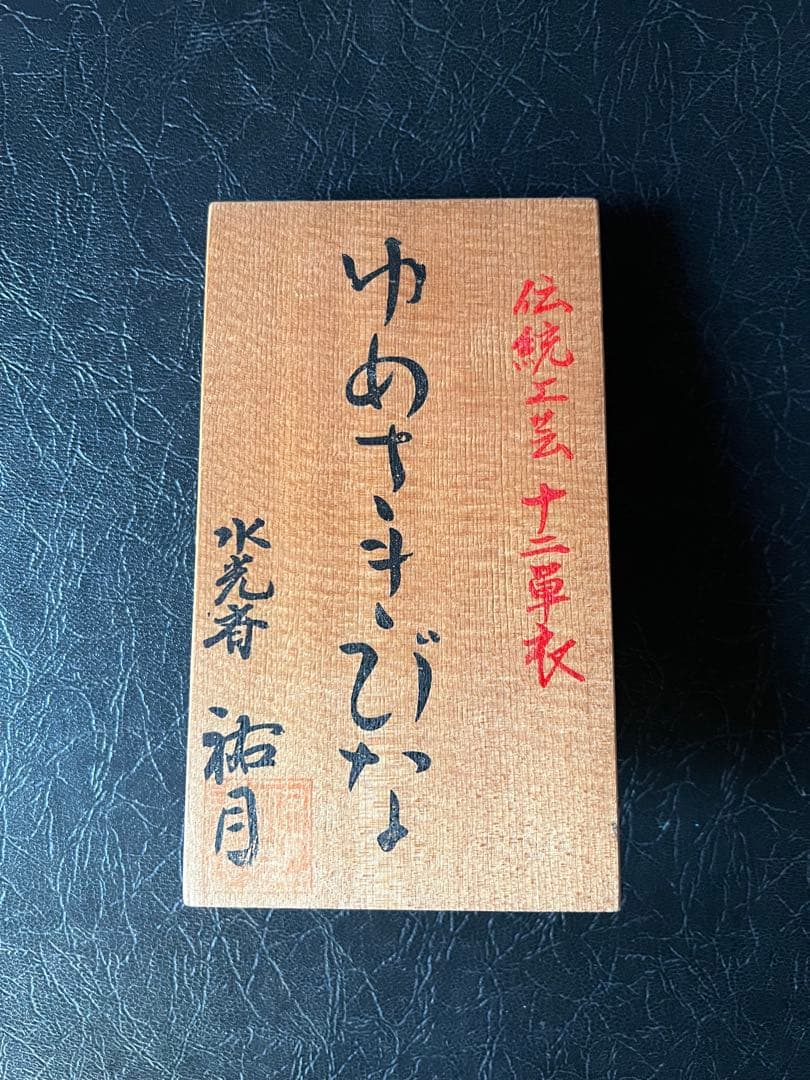 伝統工芸 十二單衣
ゆめさきびな
水光斉 祐月